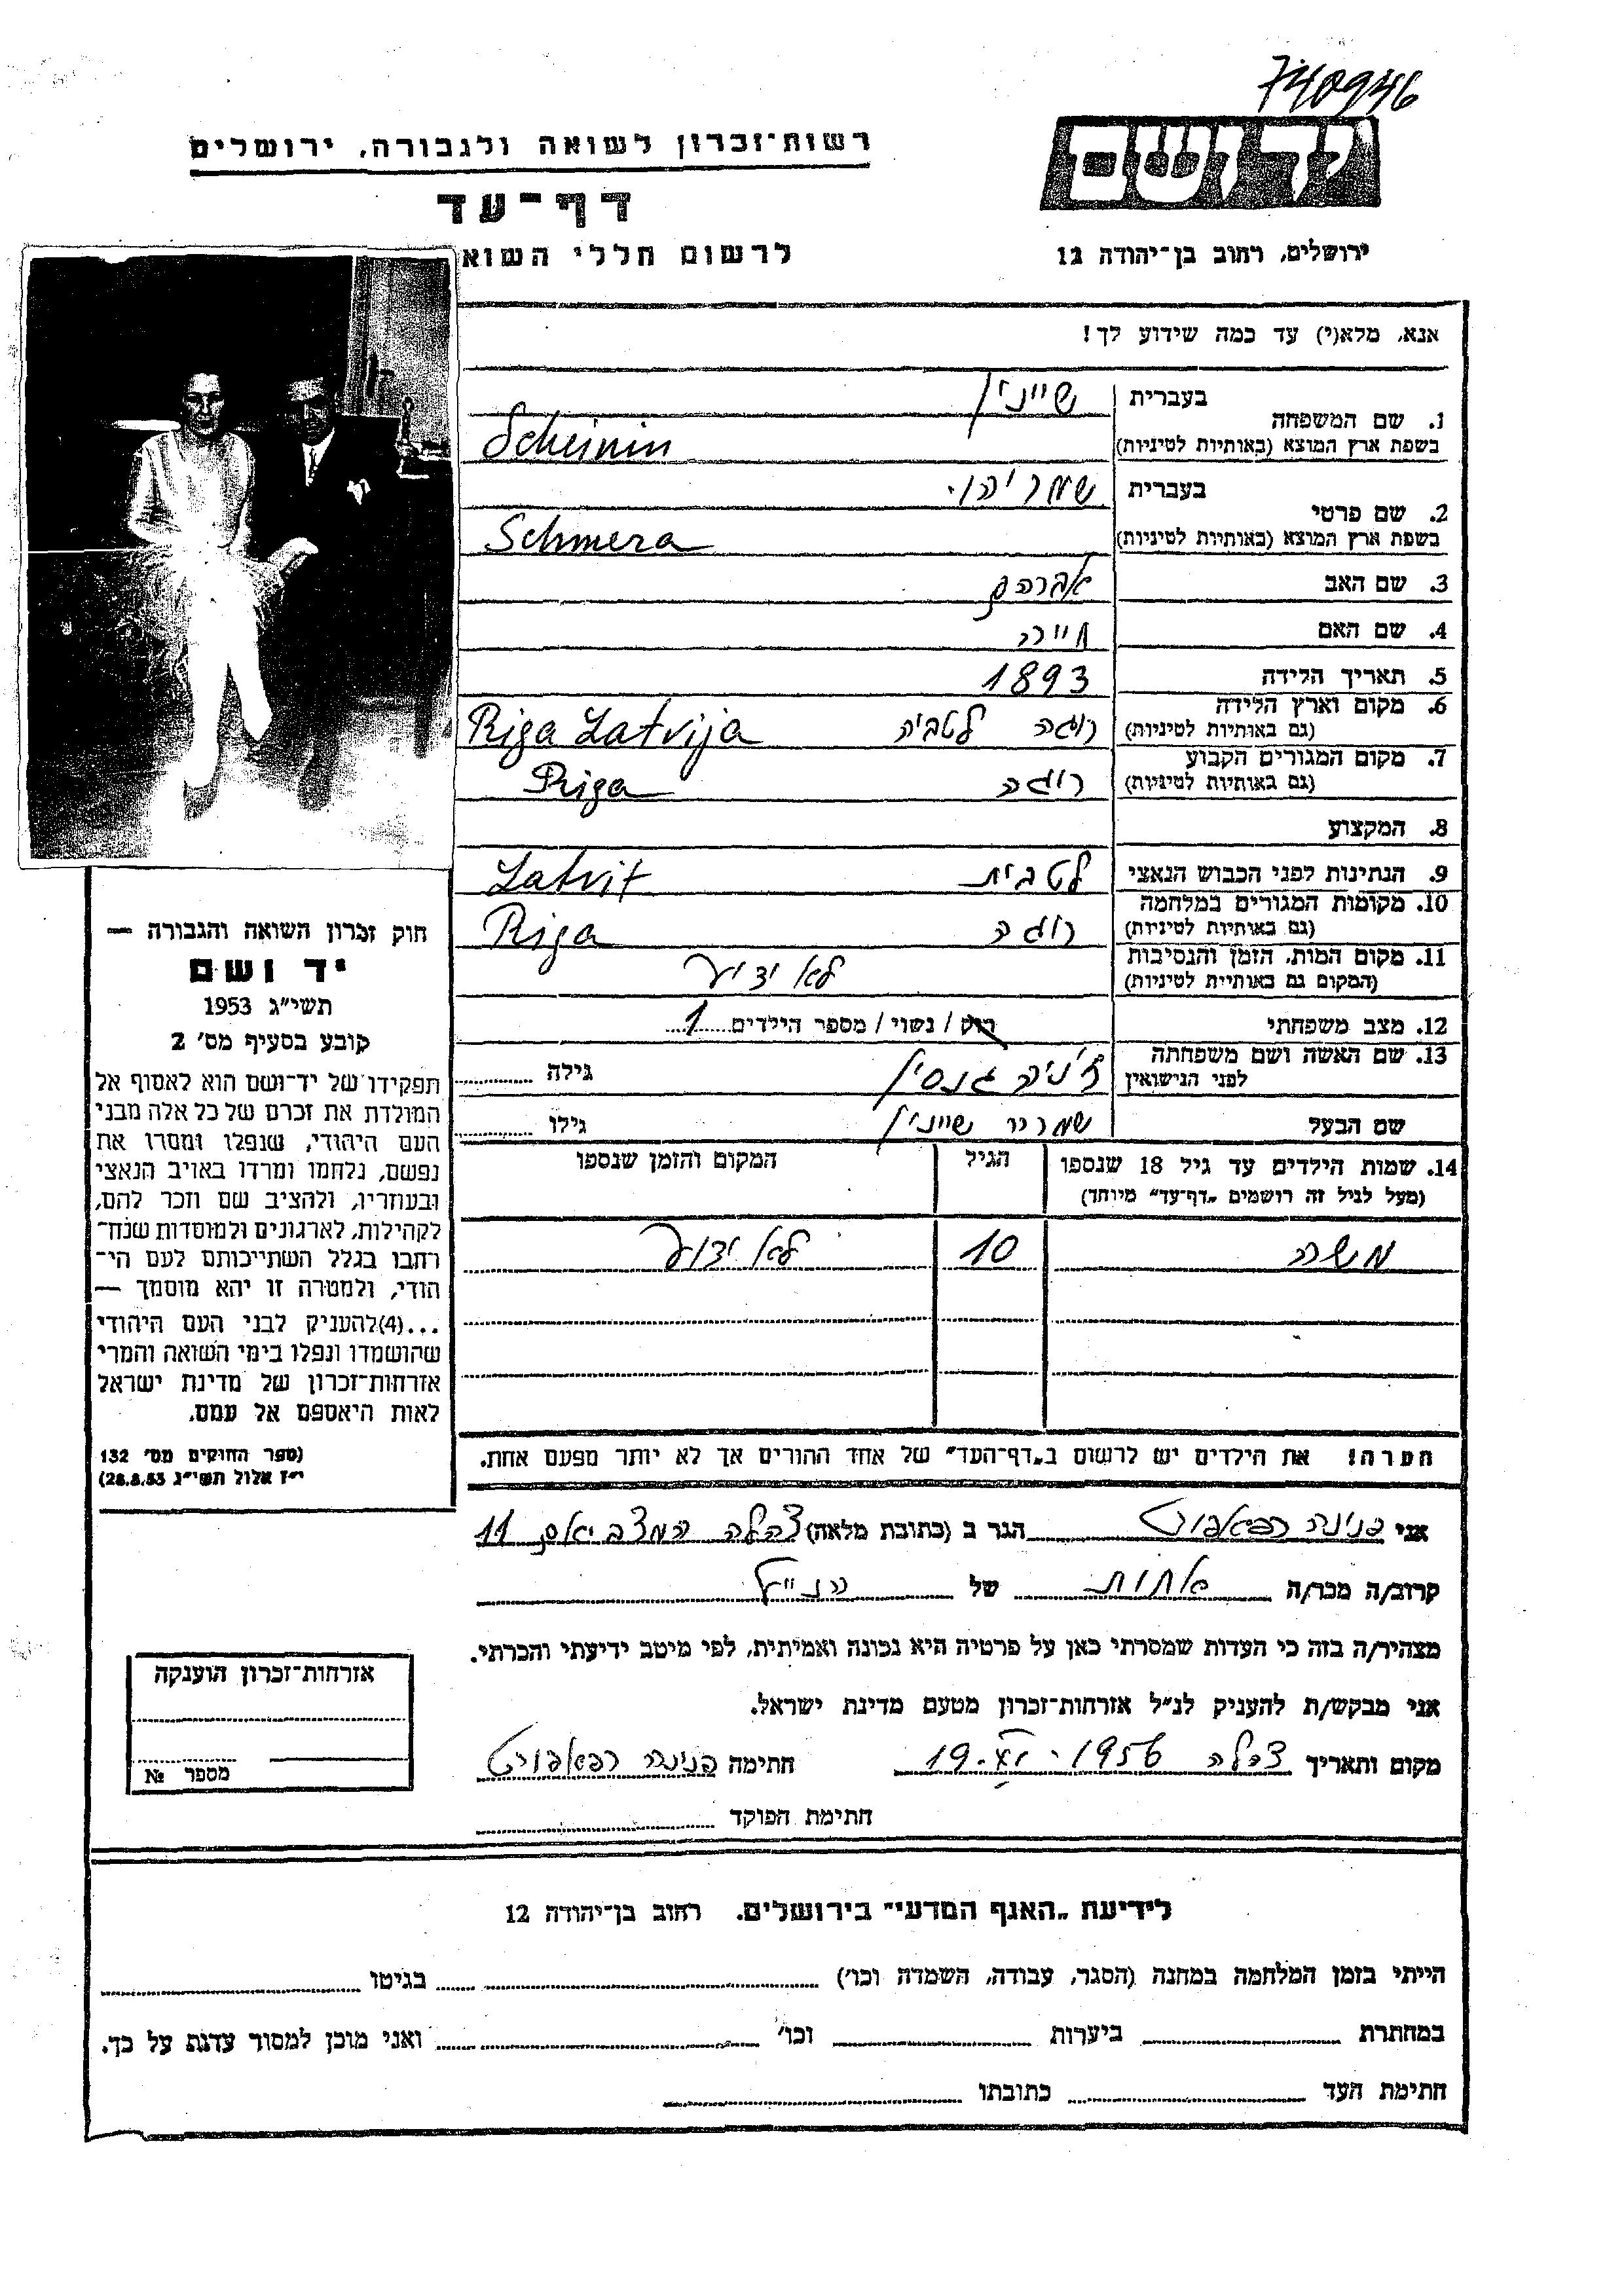 740946
רשות־זכרון לשואה ולגבורה, ירושלים
יד ושם
דף־עד
לרשום חללי השוא
ירושלים, רחוב בן־יהודה 12
אנא, מלא(י) עד כמה שידוע לך!
1. שם המשפחה בעברית שיינין
בשפת ארץ המוצא (באותיות לטיניות) Scheinin
2. שם פרטי בעברית שמריהו
בשפת ארץ המוצא (באותיות לטיניות) Schmera
3. שם האב אברהם
4. שם האם
5. תאריך הלידה 1893
6. מקום וארץ הלידה (גם באותיות לטיניות) ריגה לטביה Riga Latvija
7. מקום המגורים הקבוע (גם באותיות לטיניות) ריגה Riga
8. המקצוע
9. הנתינות לפני הכבוש הנאצי לטבית Latvit
10. מקומות המגורים במלחמה (גם באותיות לטיניות) ריגה Riga
11. מקום המות, הזמן והנסיבות (המקום גם באותיות לטיניות) לא ידוע
12. מצב משפחתי רווק / נשוי / מספר הילדים 1
13. שם האשה ושם משפחתה לפני הנישואין ז'ניה גנסין גילה
שם הבעל שמריהו שיינין גילו
14. שמות הילדים עד גיל 18 שנספו (מעל לגיל זה רושמים „דף־עד״ מיוחד) הגיל המקום והזמן שנספו
משה 10 לא ידוע
הערה! את הילדים יש לרשום ב„דף־העד״ של אחד ההורים אך לא יותר מפעם אחת.
חוק זכרון השואה והגבורה —
יד ושם
תשי״ג 1953
קובע בסעיף מס׳ 2
תפקידו של יד־ושם הוא לאסוף אל
המולדת את זכרם של כל אלה מבני
העם היהודי, שנפלו ומסרו את
נפשם, נלחמו ומרדו באויב הנאצי
ובעוזריו, ולהציב שם וזכר להם,
לקהילות, לארגונים ולמוסדות שנח־
רבו בגלל השתייכותם לעם הי־
הודי, ולמטרה זו יהא מוסמך —
...(4)להעניק לבני העם היהודי
שהושמדו ונפלו בימי השואה והמרי
אזרחות־זכרון של מדינת ישראל
לאות היאספם אל עמם.
(ספר החוקים מס׳ 132
י״ז אלול תשי״ג 28.8.53)
אני פנינה רפאפורט הגר ב (כתובת מלאה) צהלה המצביאים 11
קרוב/ה מכר/ה אחות של הנ״ל
מצהיר/ה בזה כי העדות שמסרתי כאן על פרטיה היא נכונה ואמיתית, לפי מיטב ידיעתי והכרתי.
אני מבקש/ת להעניק לנ״ל אזרחות־זכרון מטעם מדינת ישראל.
מקום ותאריך צהלה 19.XI.1956 חתימה פנינה רפאפורט
חתימת הפוקד
אזרחות־זכרון הוענקה
מספר №
לידיעת „האגף המדעי״ בירושלים. רחוב בן־יהודה 12
הייתי בזמן המלחמה במחנה (הסגר, עבודה, השמדה וכו׳) בגיטו
במחתרת ביערות וכו׳ ואני מוכן למסור עדות על כך.
חתימת העד כתובתו